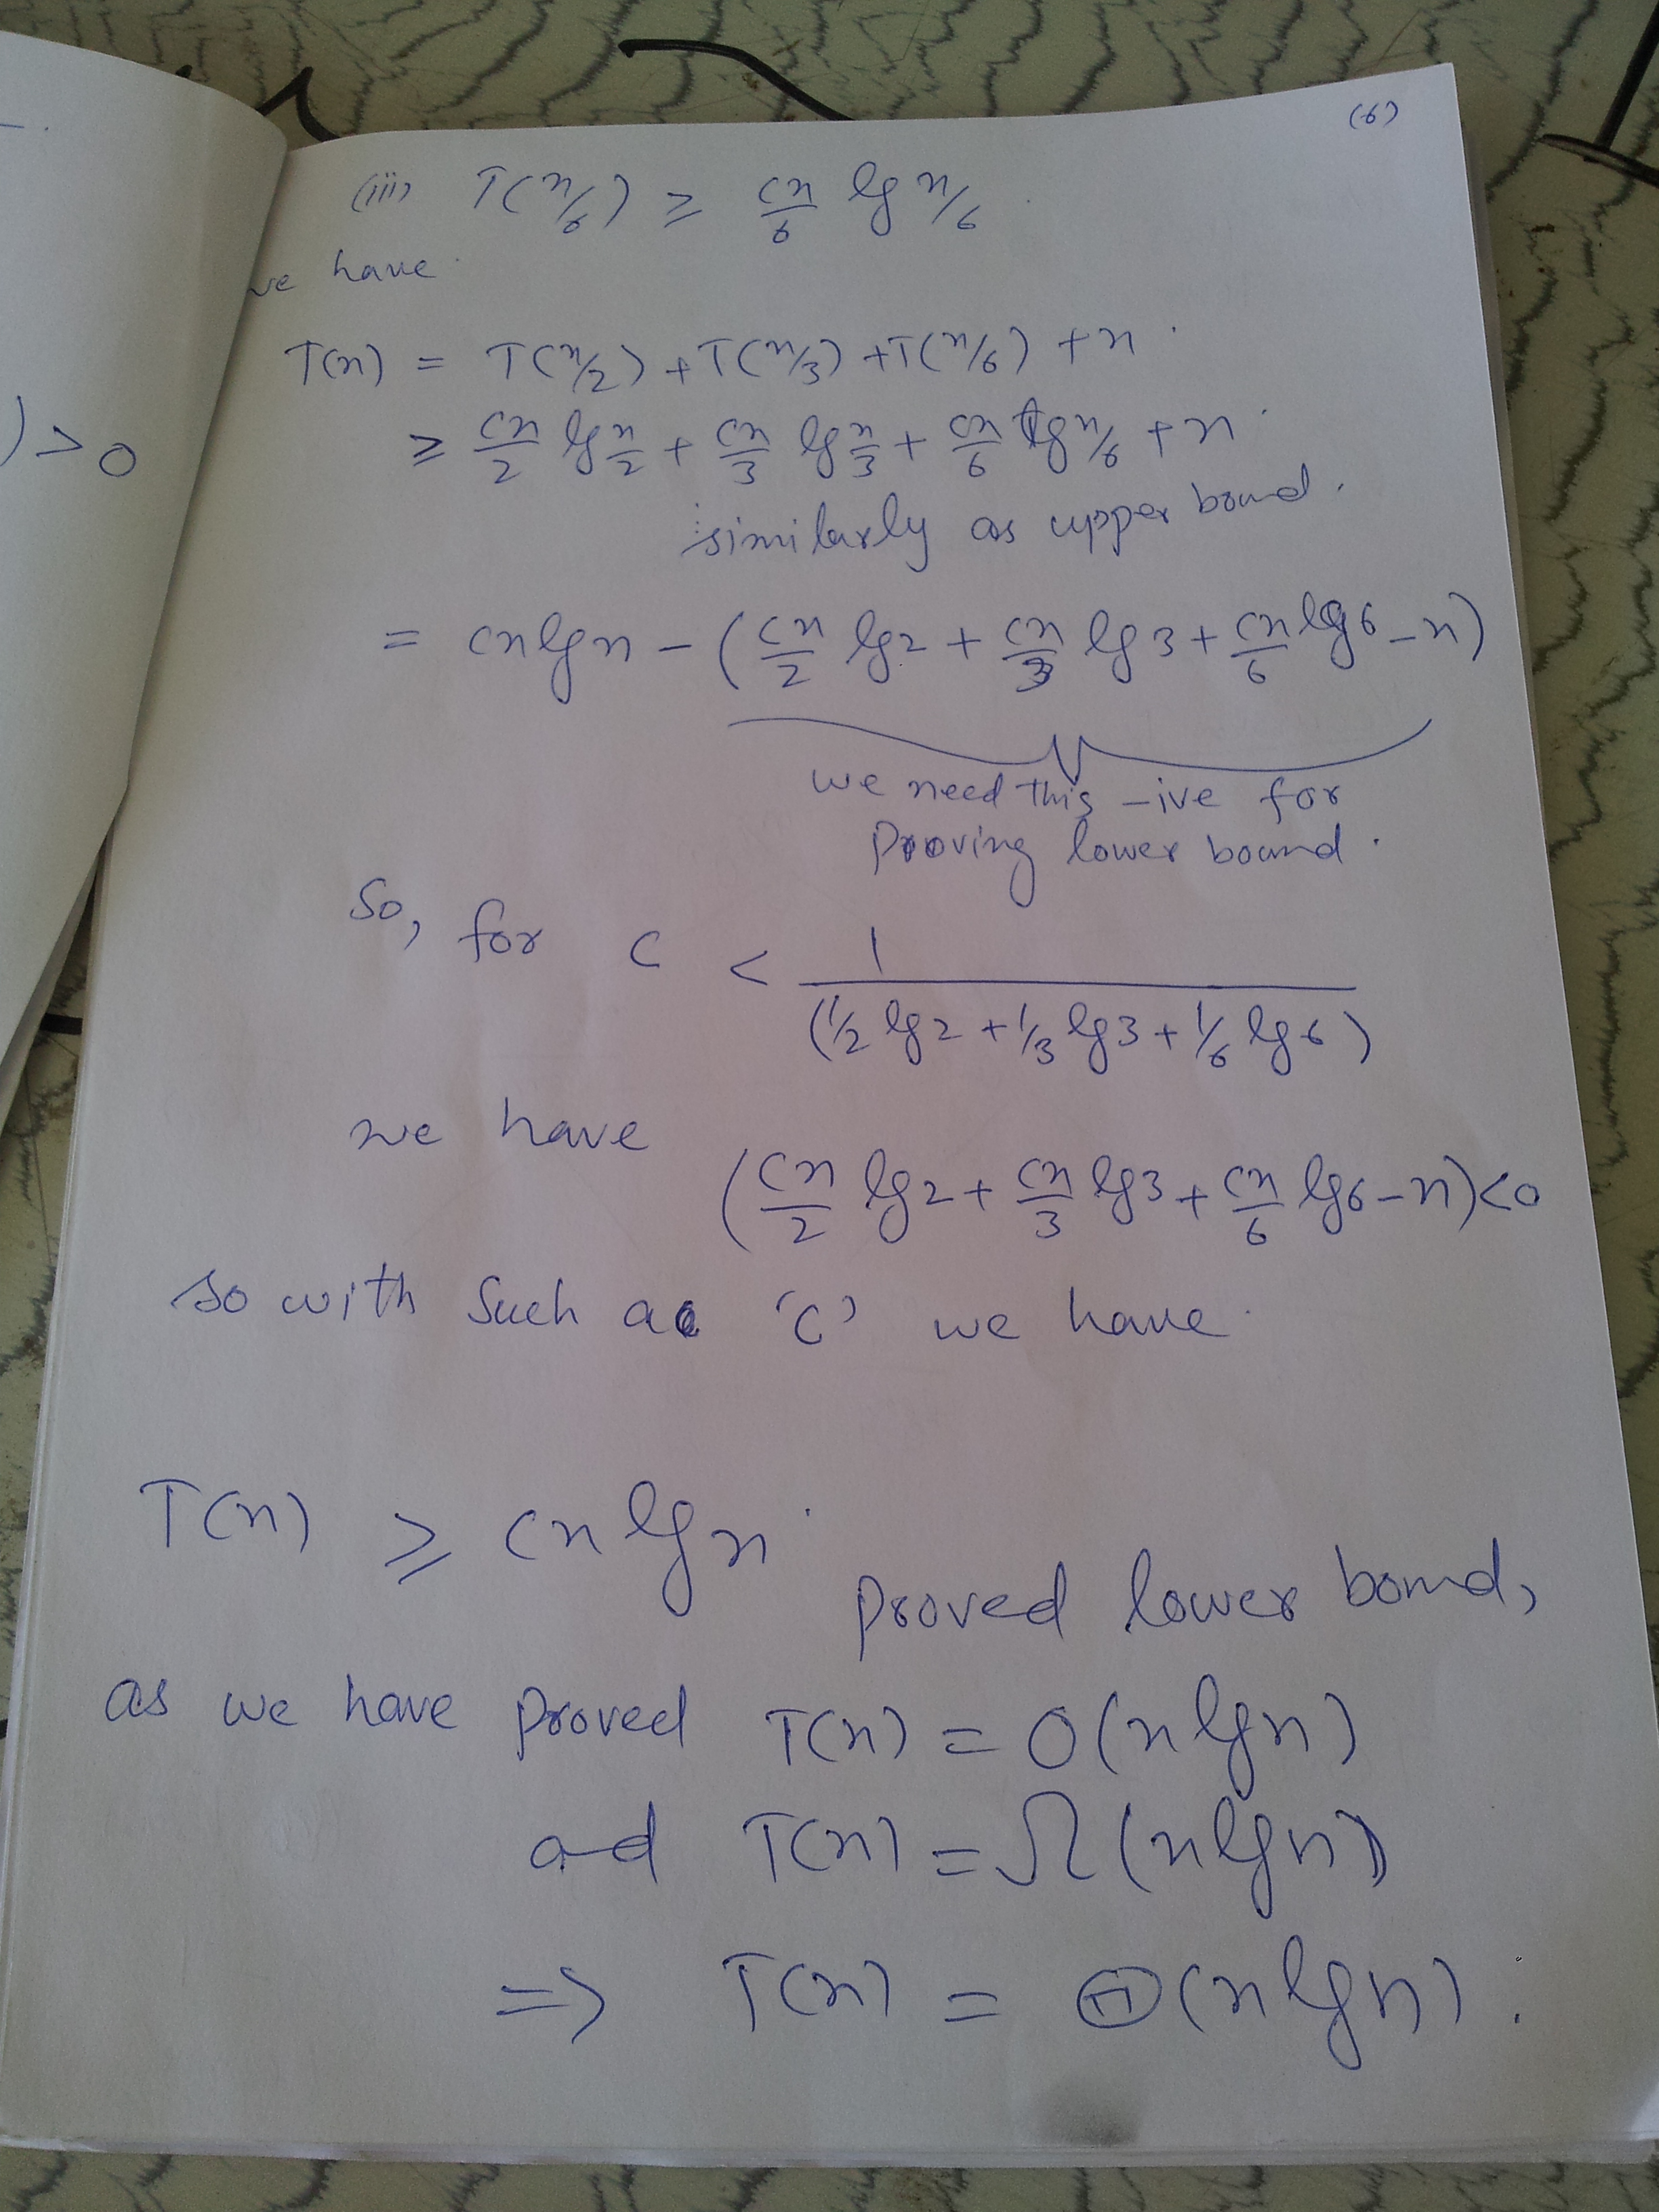 (6)
(iii) T(n/6) ≥ cn/6 lg n/6
we have
T(n) = T(n/2) + T(n/3) + T(n/6) + n.
≥ cn/2 lg n/2 + cn/3 lg n/3 + cn/6 lg n/6 + n.
similarly as upper bound.
= cnlgn - (cn/2 lg2 + cn/3 lg3 + cn/6 lg6 - n)
we need this -ive for
proving lower bound.
so, for c < 1/(1/2 lg2 + 1/3 lg3 + 1/6 lg6)
we have (cn/2 lg2 + cn/3 lg3 + cn/6 lg6 - n) < 0
so with such a 'c' we have.
T(n) ≥ cn lg n.
proved lower bound,
as we have proved T(n) = O(nlgn)
ad T(n) = Ω(nlgn)
⇒ T(n) = Θ(nlgn).
) > 0